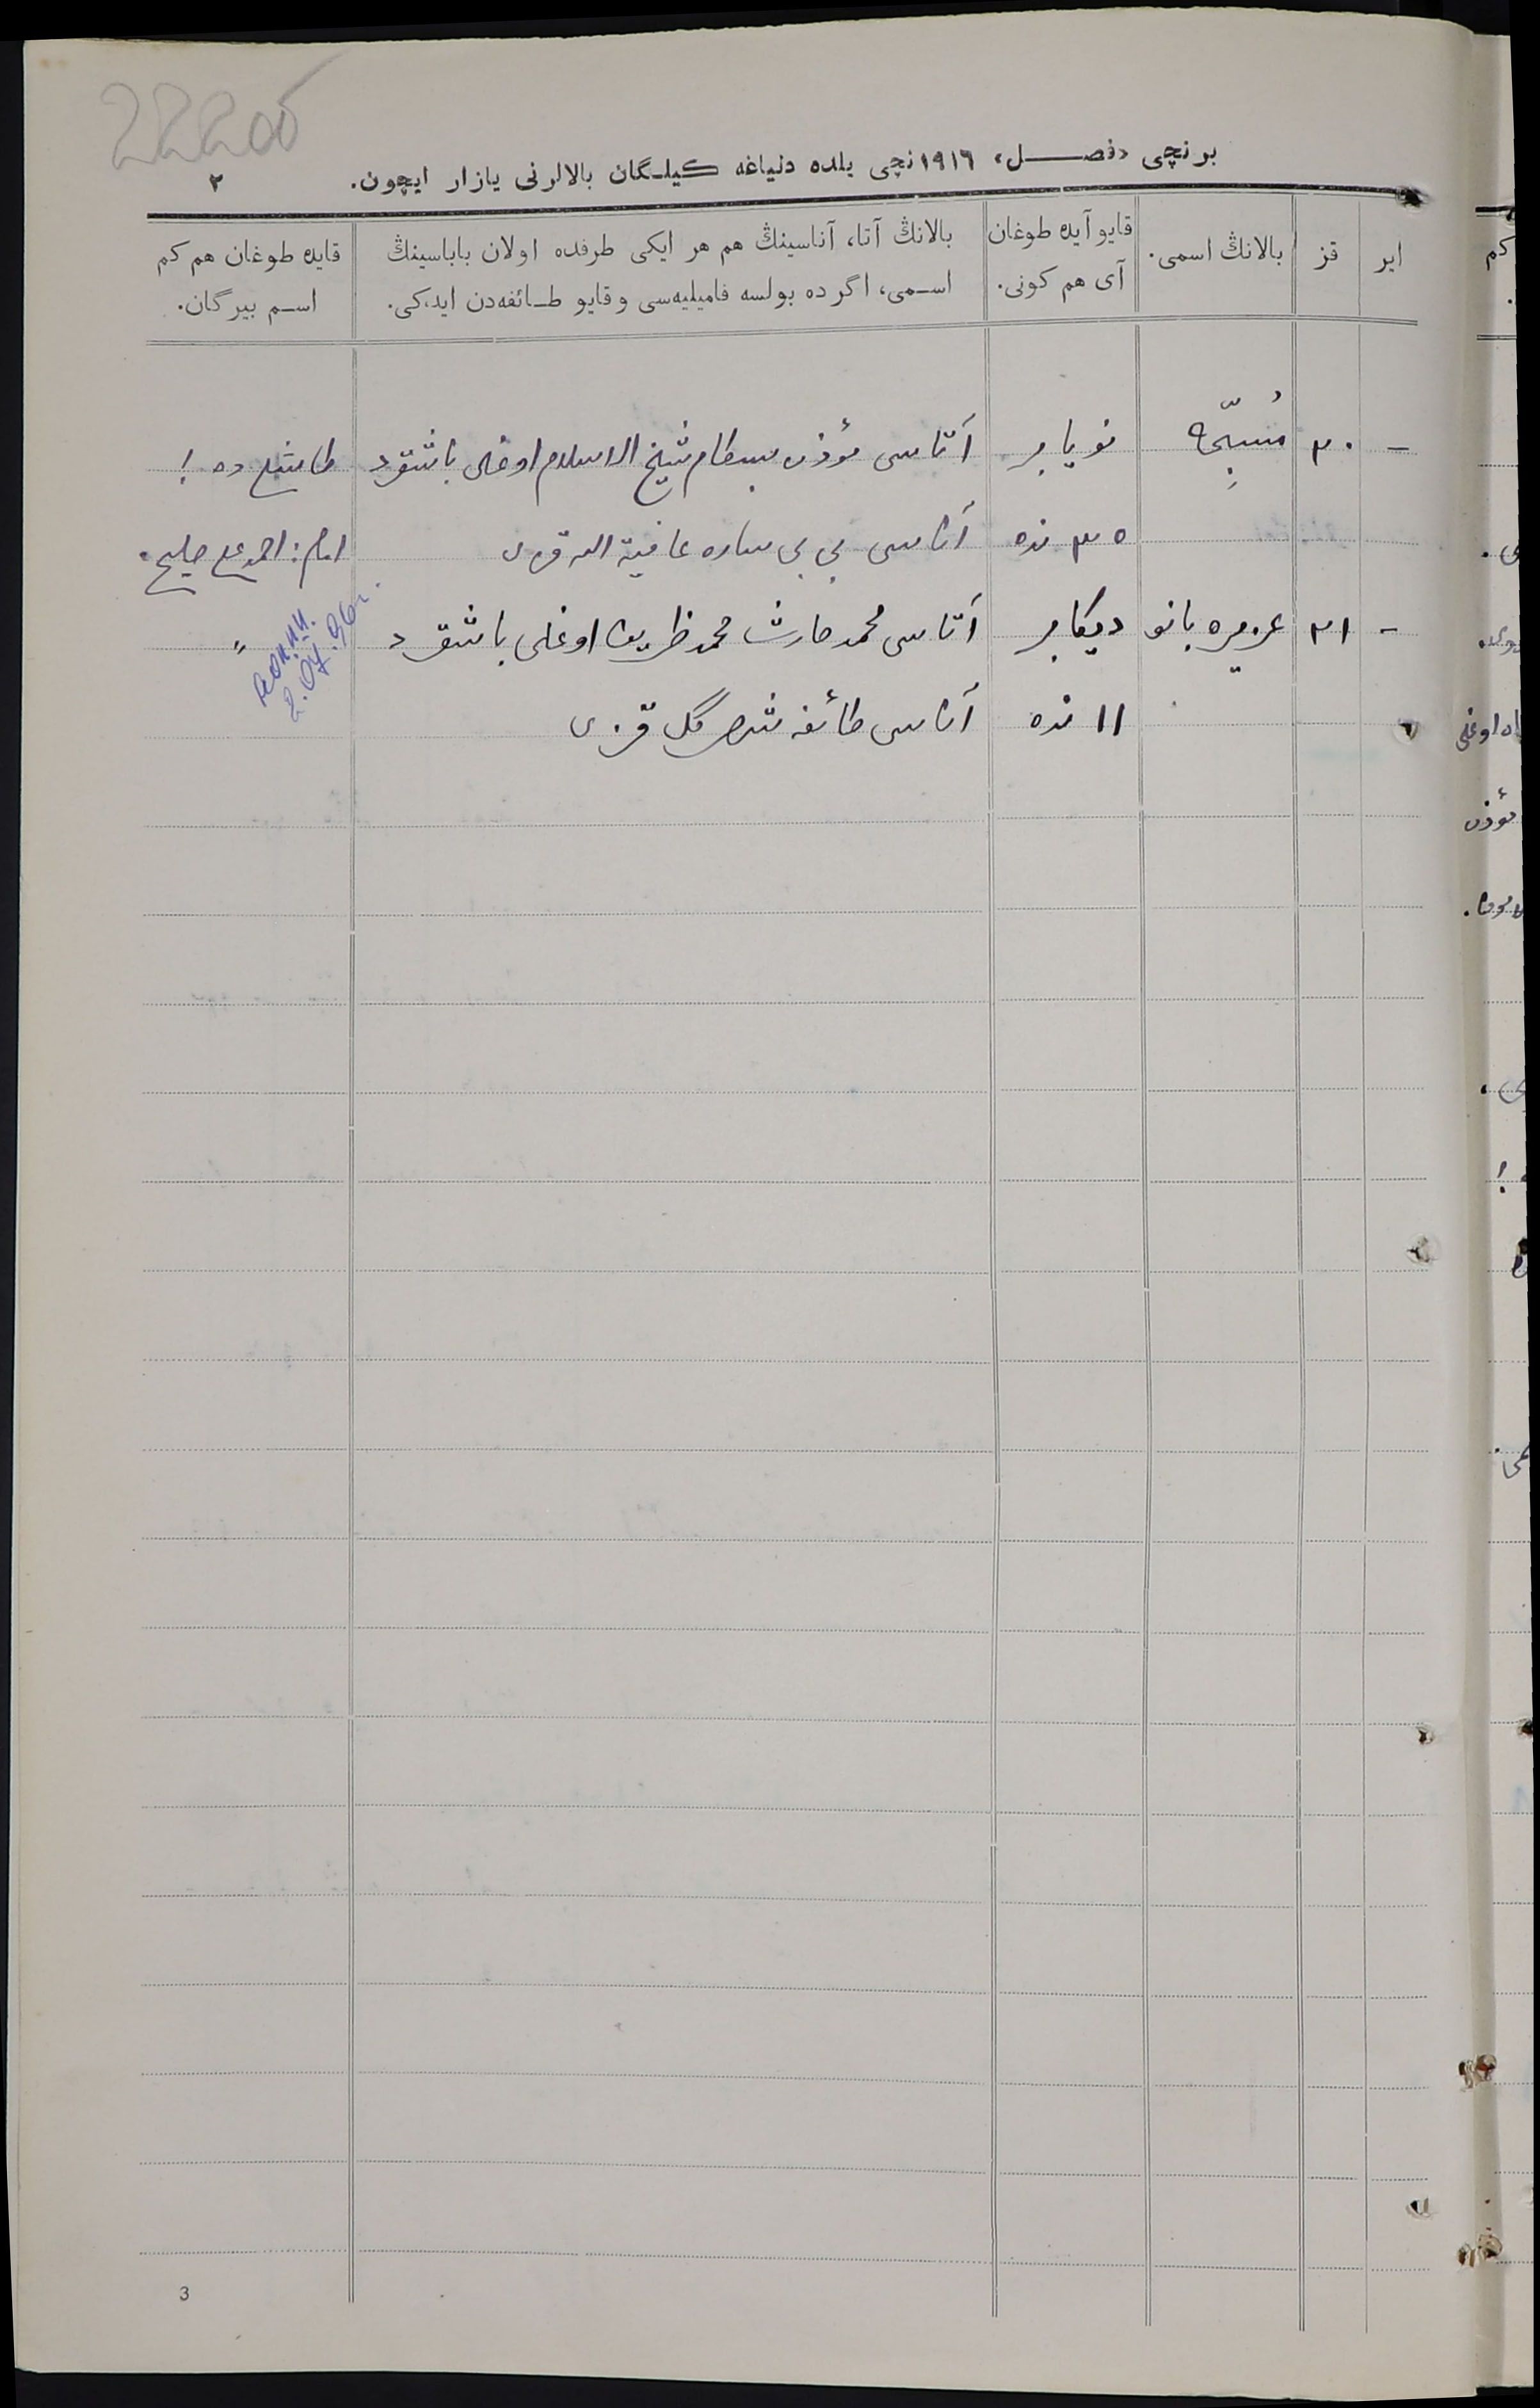 222об
برنچی «فصل» ۱۹۱٦نچی یلده دنیاغه کیلگان بالالرنی یازار ایچون. ۲
ایر
قز
بالانڭ اسمی.
قایو آیده طوغان
آی هم کونی.
بالانڭ آتا، آناسینڭ هم هر ایکی طرفده اولان باباسینڭ
اسمی، اگر ده بولسه فامیلیه‌سی و قایو طائفه‌دن ایدکی.
قایده طوغان هم کم
اسم بیرگان.
- ۳۰ مُسبِّحه نویابر آتاسی مؤذن بسطام شیخ الاسلام اوغلی باشقرد
امام: احمد
آناسی بی بی ساره عافیة الله قزی
- ۳۱ عزیزه بانو دیکابر آتاسی محمد حارث محمد ظریف اوغلی باشقرد "
۱۱ نده آناسی طائفه قزی
2.04.96г.
اوغلی
مؤذن
3